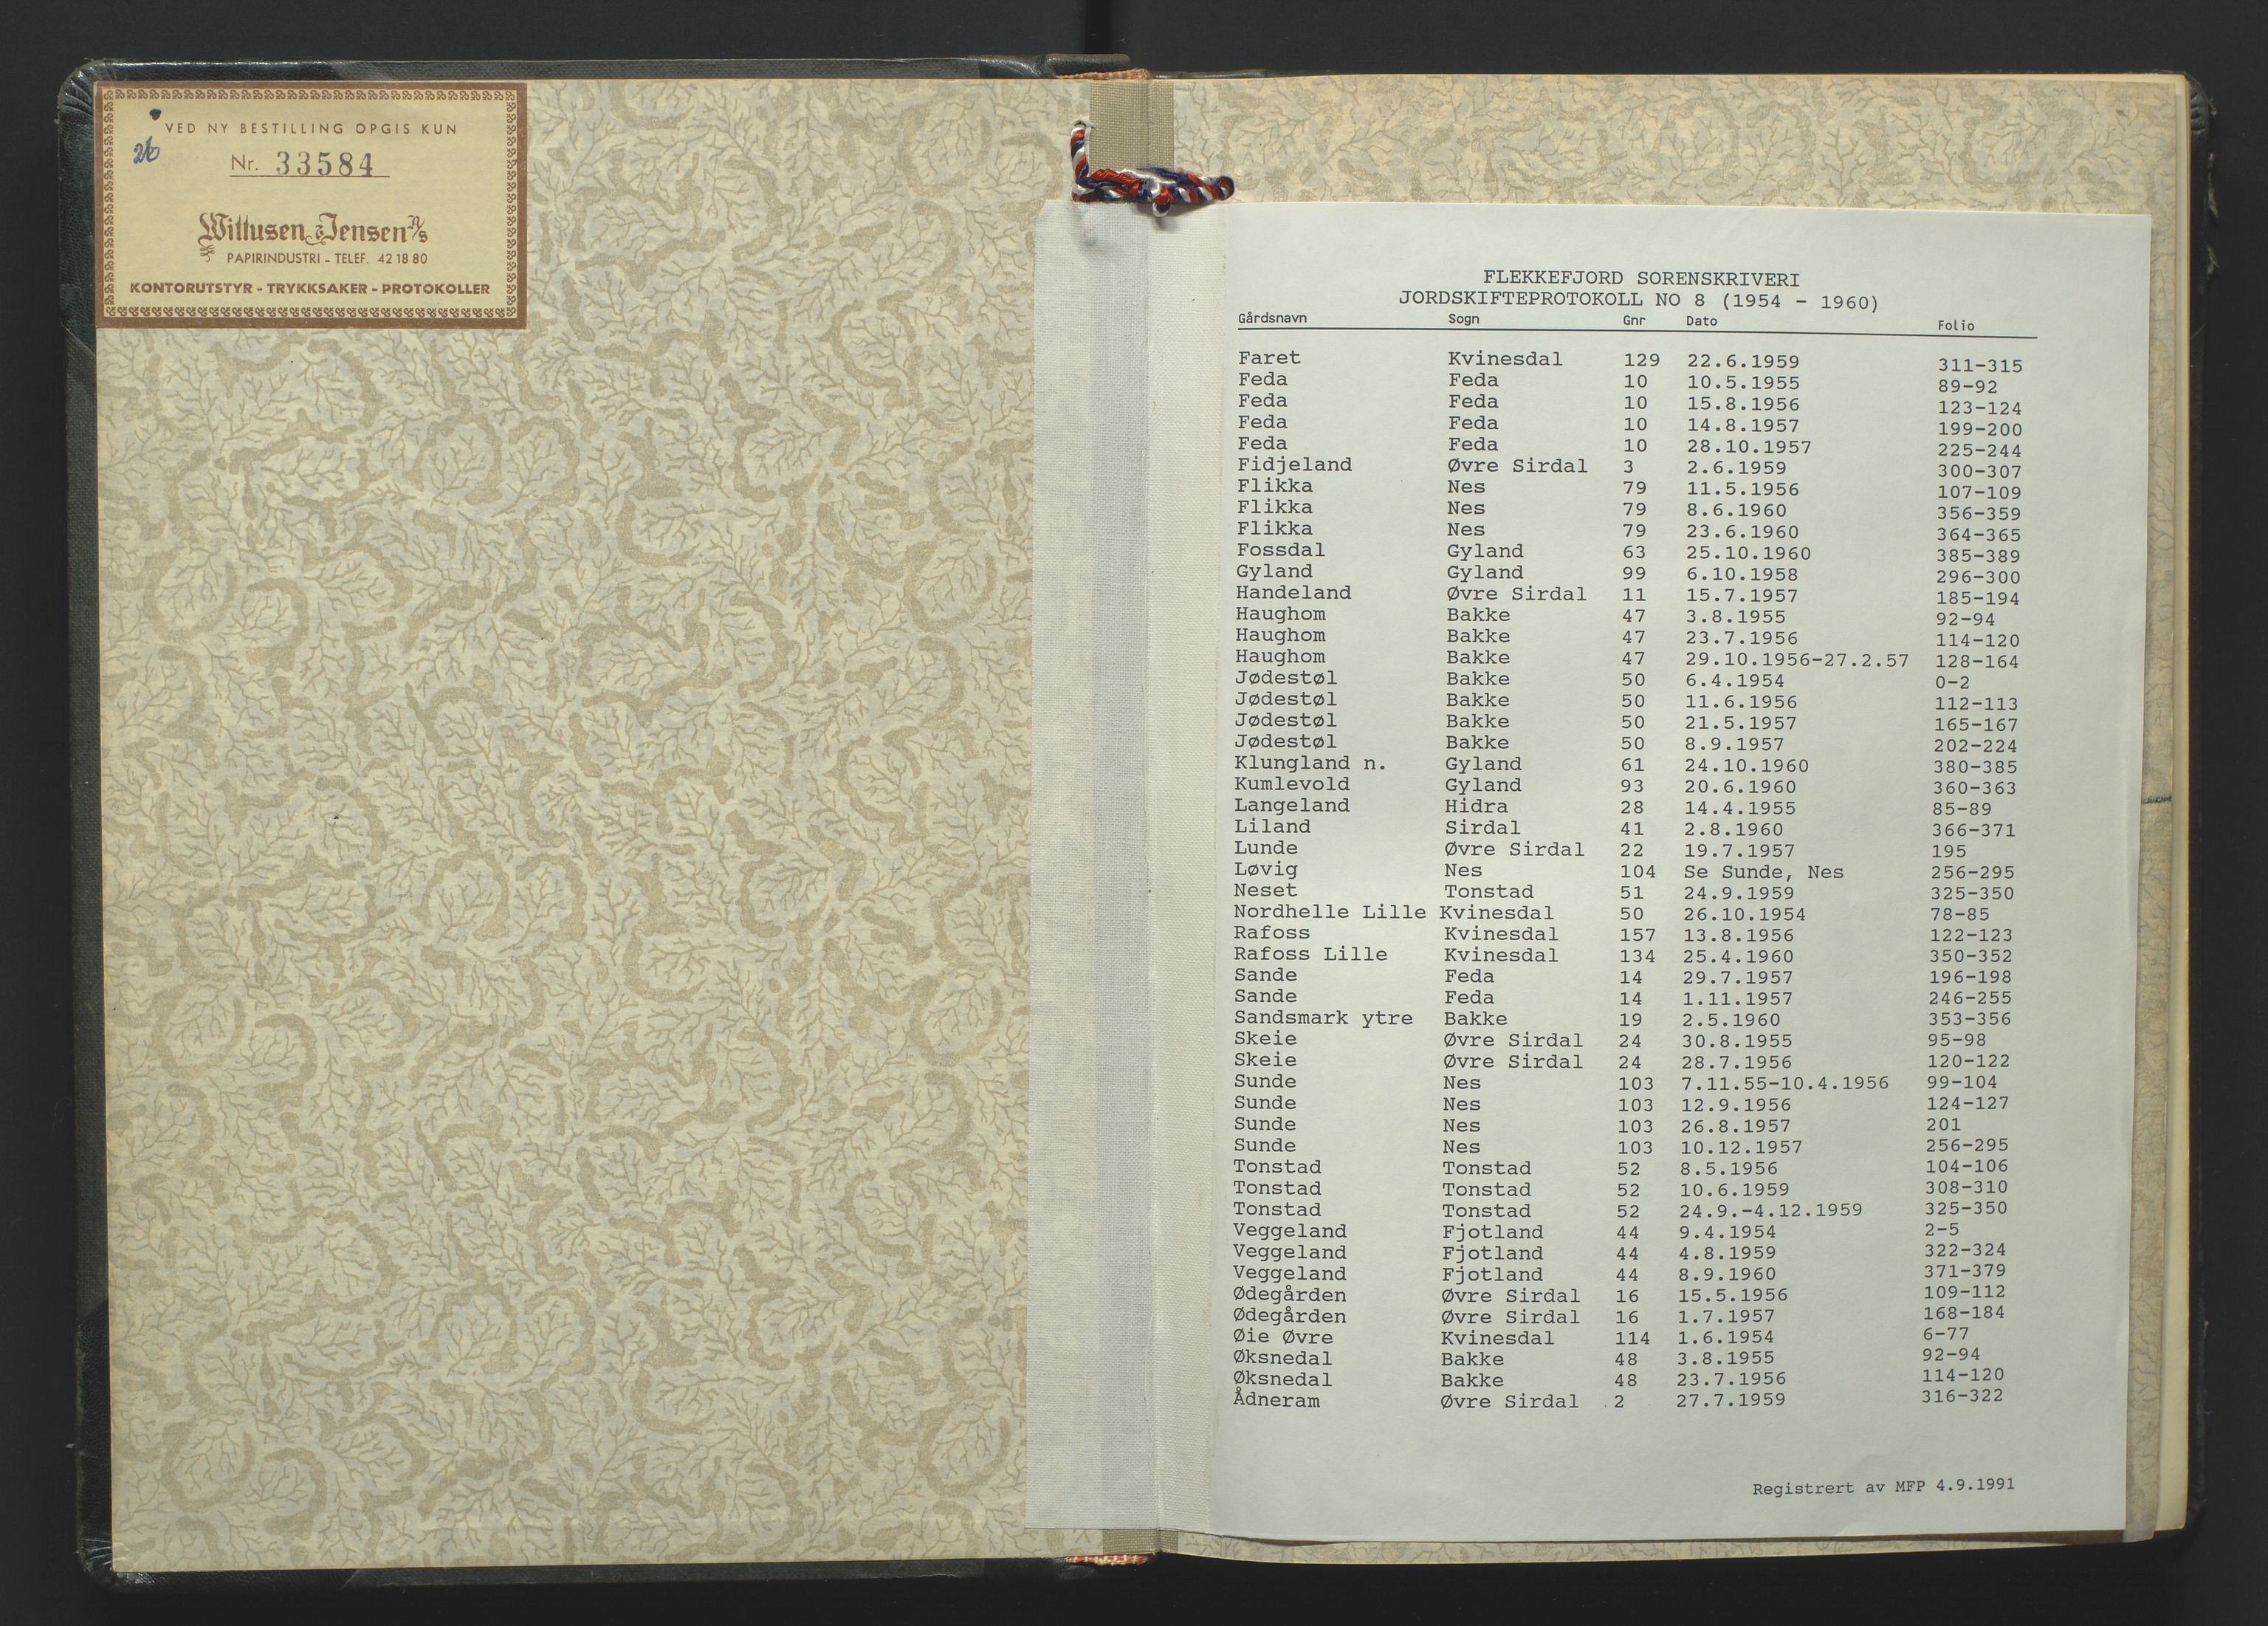 VED NY BESTILLING OPGIS KUN
26
Nr. 33584
Wittusen & Jensen A/S
PAPIRINDUSTRI - TELEF. 42 18 80
KONTORUTSTYR - TRYKKSAKER - PROTOKOLLER
FLEKKEFJORD SORENSKRIVERI
JORDSKIFTEPROTOKOLL NO 8 (1954 - 1960)
Gårdsnavn Sogn Gnr Dato Folio
Faret Kvinesdal 129 22.6.1959 311-315
Feda Feda 10 10.5.1955 89-92
Feda Feda 10 15.8.1956 123-124
Feda Feda 10 14.8.1957 199-200
Feda Feda 10 28.10.1957 225-244
Fidjeland Øvre Sirdal 3 2.6.1959 300-307
Flikka Nes 79 11.5.1956 107-109
Flikka Nes 79 8.6.1960 356-359
Flikka Nes 79 23.6.1960 364-365
Fossdal Gyland 63 25.10.1960 385-389
Gyland Gyland 99 6.10.1958 296-300
Handeland Øvre Sirdal 11 15.7.1957 185-194
Haughom Bakke 47 3.8.1955 92-94
Haughom Bakke 47 23.7.1956 114-120
Haughom Bakke 47 29.10.1956-27.2.57 128-164
Jødestøl Bakke 50 6.4.1954 0-2
Jødestøl Bakke 50 11.6.1956 112-113
Jødestøl Bakke 50 21.5.1957 165-167
Jødestøl Bakke 50 8.9.1957 202-224
Klungland n. Gyland 61 24.10.1960 380-385
Kumlevold Gyland 93 20.6.1960 360-363
Langeland Hidra 28 14.4.1955 85-89
Liland Sirdal 41 2.8.1960 366-371
Lunde Øvre Sirdal 22 19.7.1957 195
Løvig Nes 104 Se Sunde, Nes 256-295
Neset Tonstad 51 24.9.1959 325-350
Nordhelle Lille Kvinesdal 50 26.10.1954 78-85
Rafoss Kvinesdal 157 13.8.1956 122-123
Rafoss Lille Kvinesdal 134 25.4.1960 350-352
Sande Feda 14 29.7.1957 196-198
Sande Feda 14 1.11.1957 246-255
Sandsmark ytre Bakke 19 2.5.1960 353-356
Skeie Øvre Sirdal 24 30.8.1955 95-98
Skeie Øvre Sirdal 24 28.7.1956 120-122
Sunde Nes 103 7.11.55-10.4.1956 99-104
Sunde Nes 103 12.9.1956 124-127
Sunde Nes 103 26.8.1957 201
Sunde Nes 103 10.12.1957 256-295
Tonstad Tonstad 52 8.5.1956 104-106
Tonstad Tonstad 52 10.6.1959 308-310
Tonstad Tonstad 52 24.9.-4.12.1959 325-350
Veggeland Fjotland 44 9.4.1954 2-5
Veggeland Fjotland 44 4.8.1959 322-324
Veggeland Fjotland 44 8.9.1960 371-379
Ødegården Øvre Sirdal 16 15.5.1956 109-112
Ødegården Øvre Sirdal 16 1.7.1957 168-184
Øie Øvre Kvinesdal 114 1.6.1954 6-77
Øksnedal Bakke 48 3.8.1955 92-94
Øksnedal Bakke 48 23.7.1956 114-120
Ådneram Øvre Sirdal 2 27.7.1959 316-322
Registrert av MFP 4.9.1991